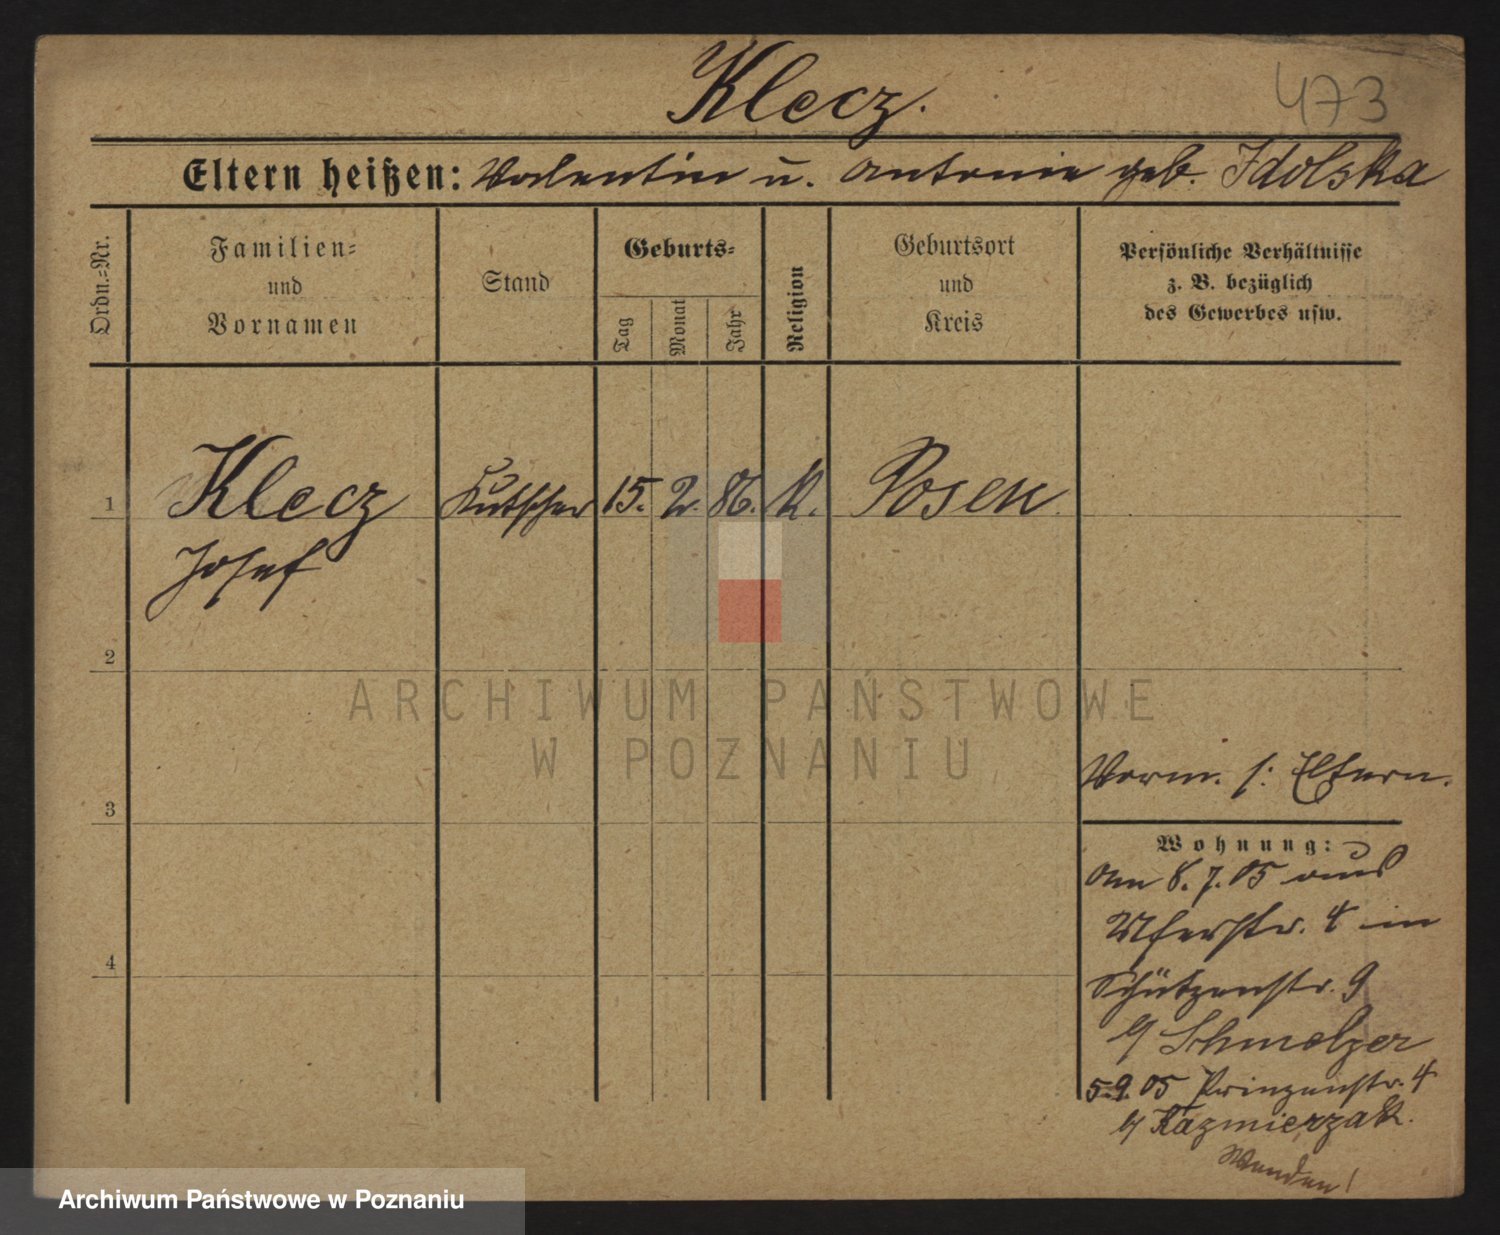 Klecz.
473
Eltern heißen: Valentin u. Antonie geb. Idolska
Ordn.-Nr.
Familien-
und
Vornamen
Stand
Geburts-
Tag
Monat
Jahr
Religion
Geburtsort
und
Kreis
Persönliche Verhältnisse
z. B. bezüglich
des Gewerbes usw.
1 Klecz Kutscher 15. 2. 86. K. Posen
Josef
2
3
4
Vorm. s: Eltern.
Wohnung:
Am 8. 7. 05 aus
Uferstr. 4 in
Schützenstr. 9
b/ Schmelzer
5.9.05 Prinzenstr. 4
b/ Kazmierzak.
Wenden!
ARCHIWUM PAŃSTWOWE
W POZNANIU
Archiwum Państwowe w Poznaniu